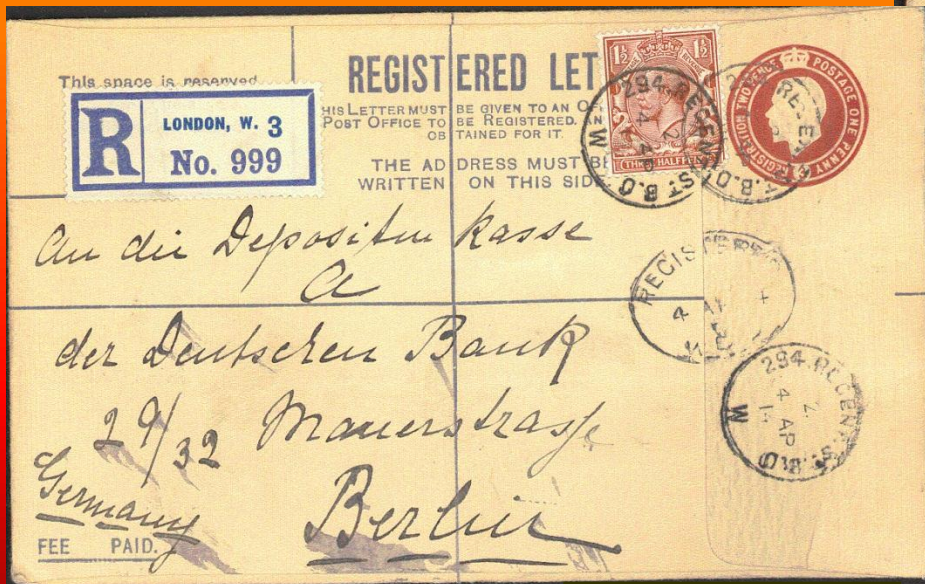 This space is reserved
REGISTERED LET
HIS LETTER MUST BE GIVEN TO AN O
POST OFFICE TO BE REGISTERED, AN
OBTAINED FOR IT.
THE ADDRESS MUST BE
WRITTEN ON THIS SIDE
R
LONDON, W. 3
No. 999
1½ 1½
THREE HALFPE
REGISTRATION TWO PENCE POSTAGE ONE PENNY
294. REGENT ST. B.O
W
An die Depositen Kasse
A
REGISTERED
4 AP
der Deutschen Bank
294. REGENT ST. B.O
2
4 AP
14
W
29/32 Mauerstrasse
Germany
Berlin
FEE PAID.